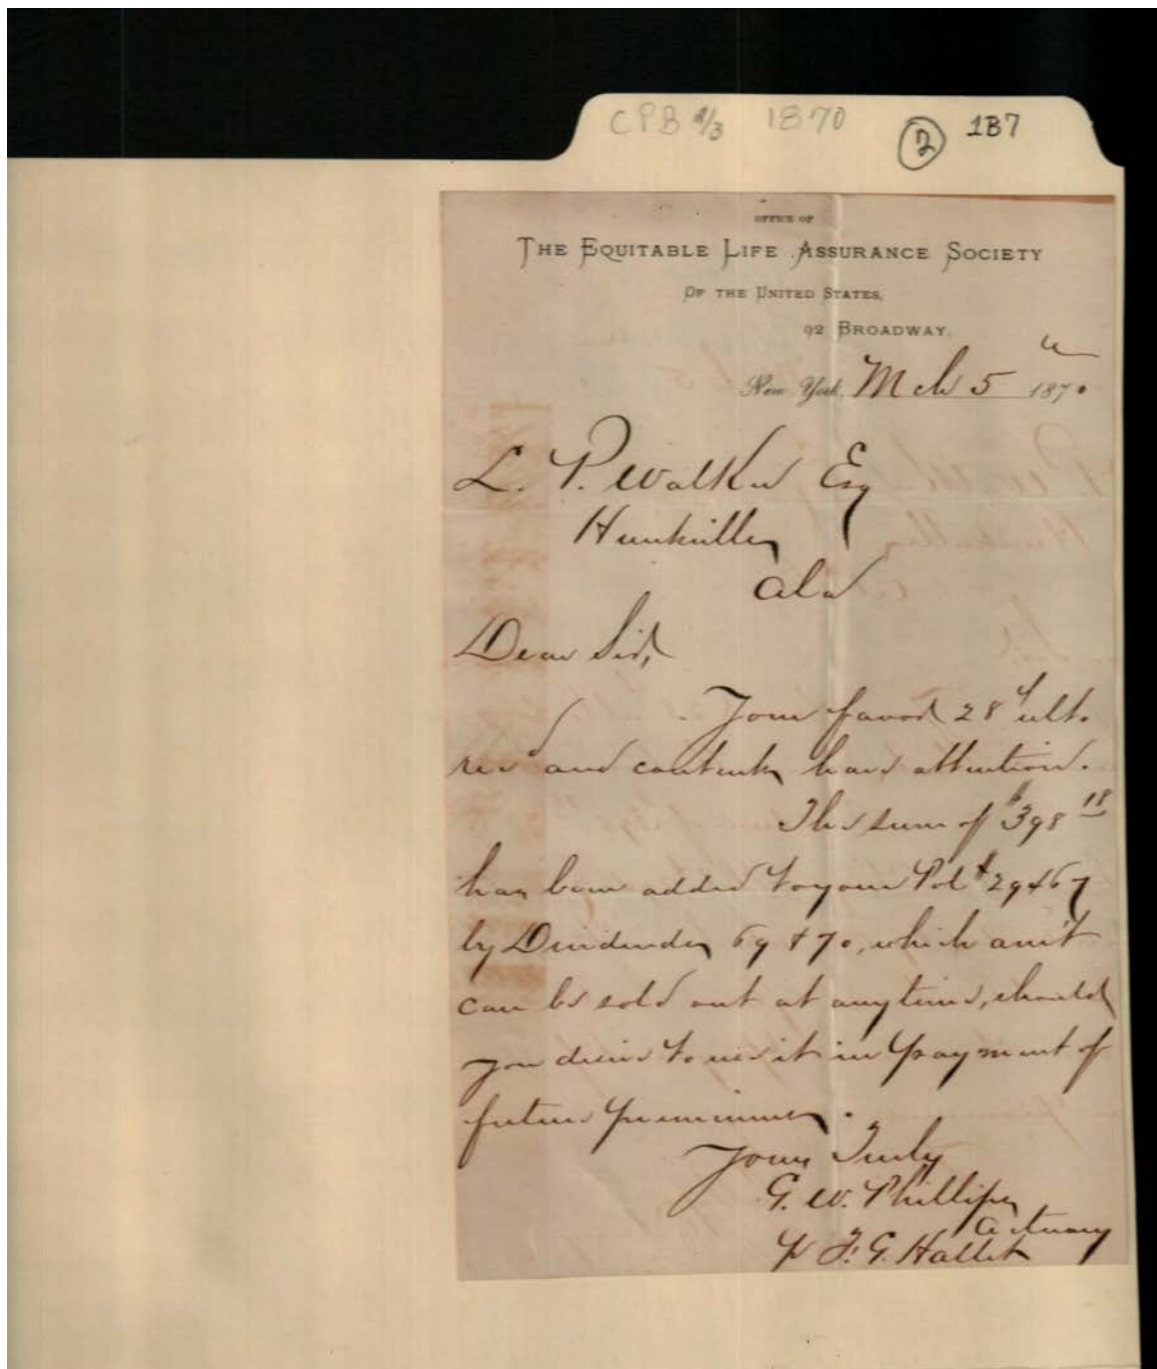 CPB 2/3 1870 2 1B7
OFFICE OF
THE EQUITABLE LIFE ASSURANCE SOCIETY
OF THE UNITED STATES,
92 BROADWAY.
New York, Mch 5 1870
L. P. Walker Esq
Huntsville
Ala
Dear Sir,
Your favor 28 ult.
recd and contents have attention.
The sum of $398 18
has been added to your Pol # 29467
by Dividends 69 & 70, which am't
can be sold out at any time, should
you desire to use it in payment of
future premiums.
Yours Truly
G. W. Phillips
Actuary
p F. G. Hallet